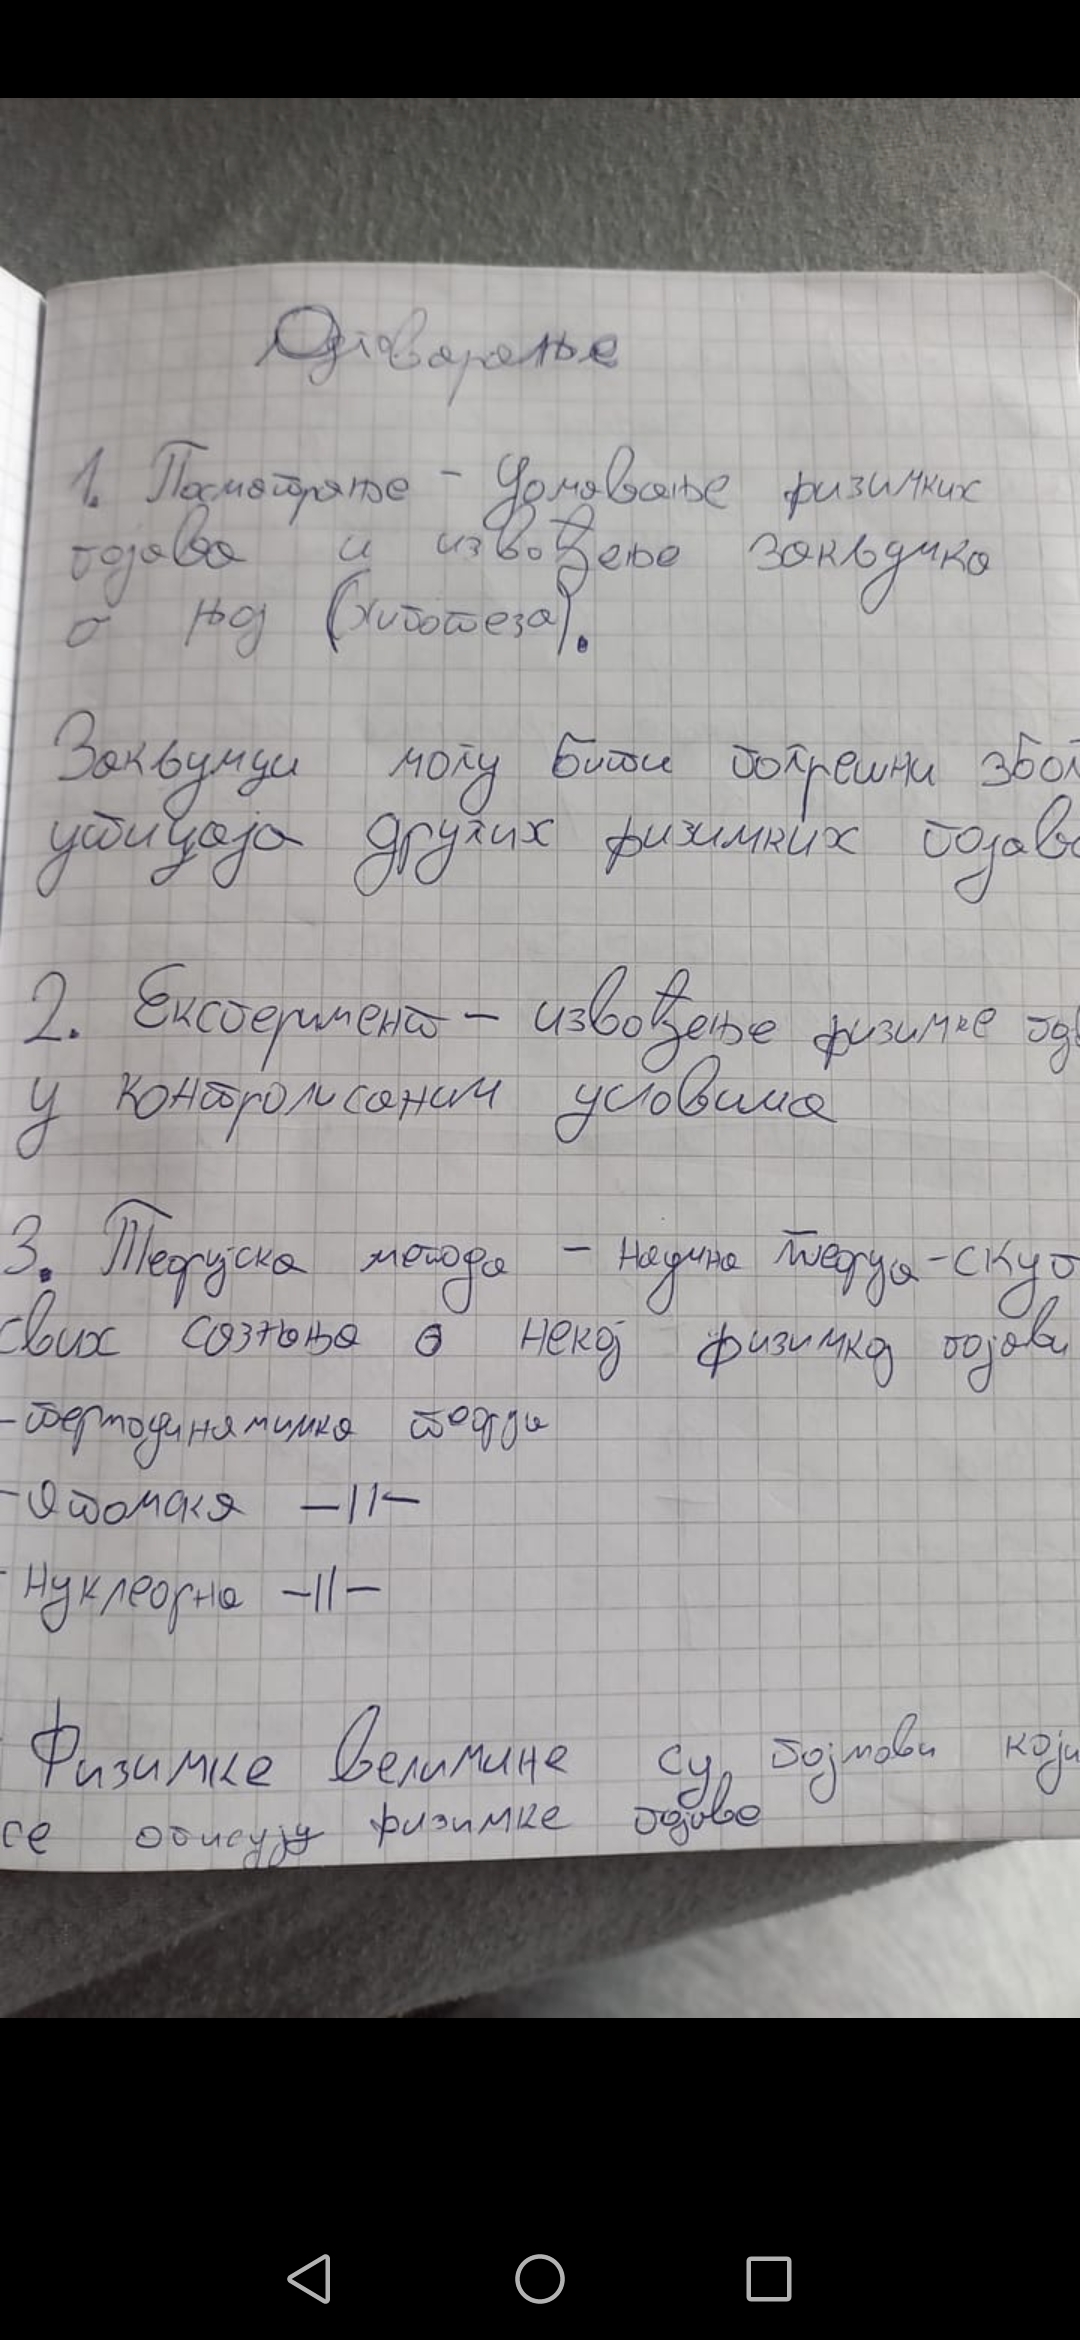 Одговарање
1. Посматрање - уочавање физичких
појава и извођење закључка
о њој (хипотеза).
Закључци могу бити погрешни због
утицаја других физичких појава
2. Експеримент - извођење физичке
у контролисаним условима
3. Теоријска метода - научна теорија - скуп
свих сазнања о некој физичкој појави
- термодинамичка теорија
- Атомска -||-
- Нуклеарна -||-
Физичке величине су појмови који
се описују физичке појаве